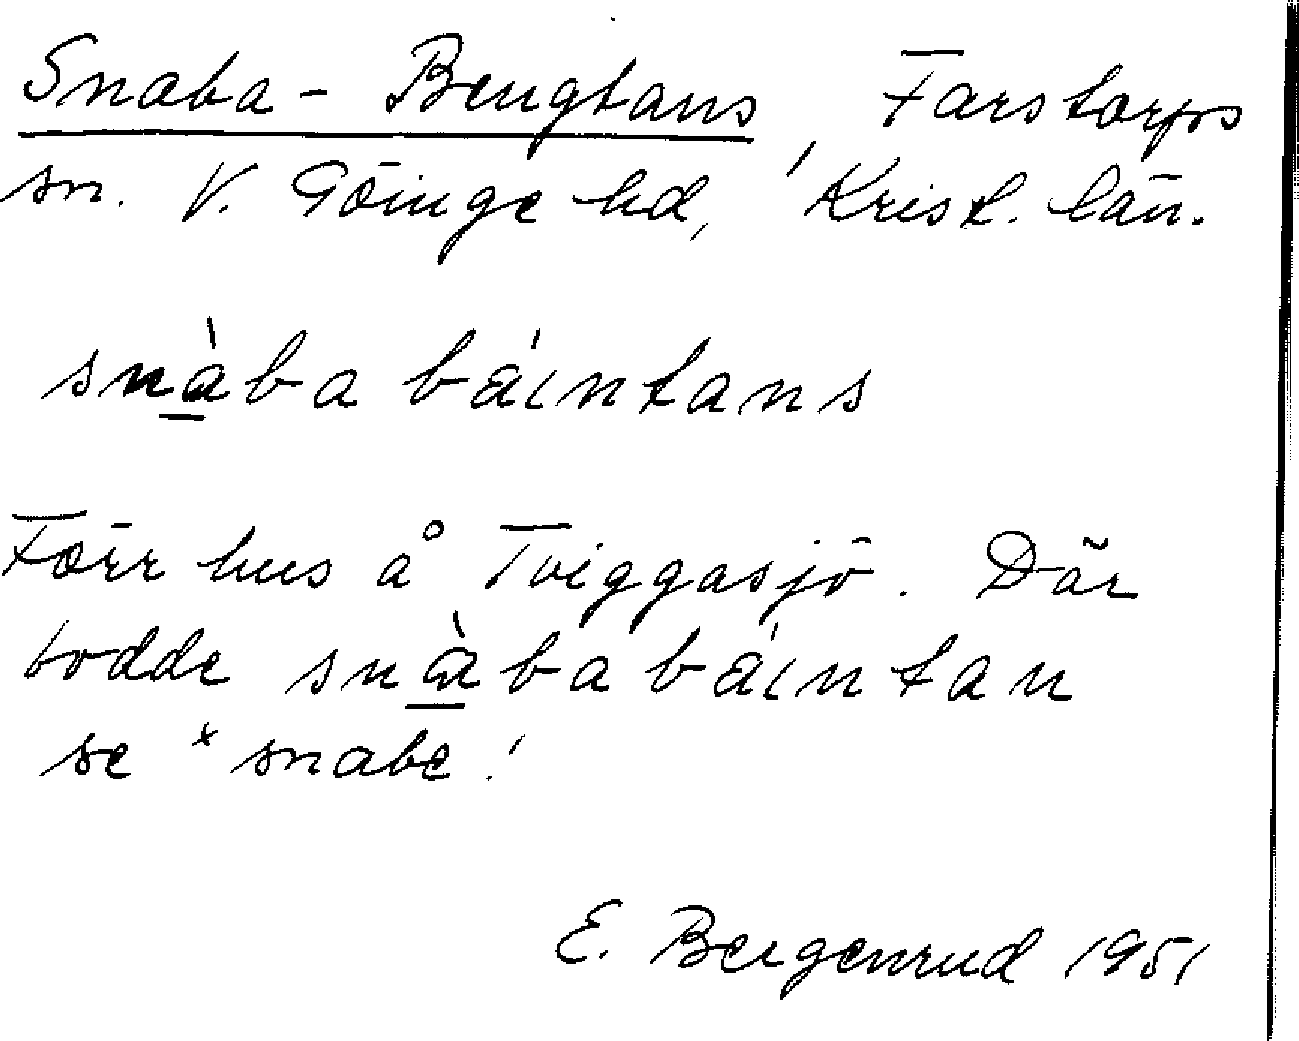 Snaba-Bengtans, Farstorps
sn. V. Göinge hd, Krist. län.
snàba báintans
Förr hus å Tviggasjö. Där
bodde snàba báintan
se *snabe!
E. Bergenrud 1951